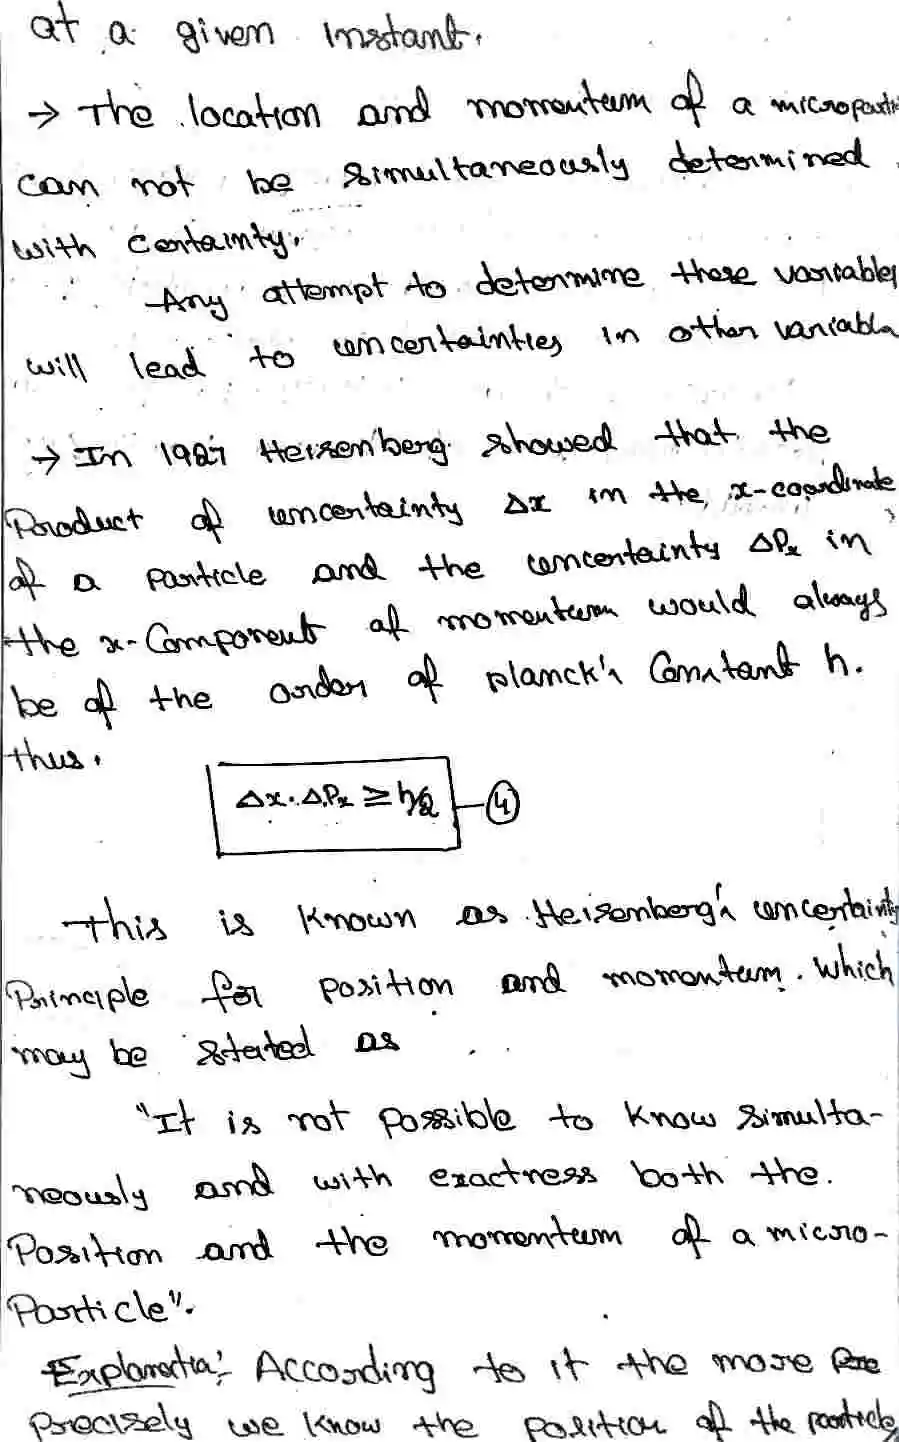 at a given instant.
→ The location and momentum of a microparti
can not be simultaneously determined
with certainty.
Any attempt to determine these variables
will lead to uncertainties in other variable
→ In 1927 Heisenberg showed that the
Product of uncertainty Δx in the x-coordinate
of a particle and the uncertainty ΔPx in
the x-Component of momentum would always
be of the order of planck's Constant h.
thus.
Δx.ΔPx ≥ h/2 — ④
This is known as Heisenberg's uncertainty
Principle for position and momentum. Which
may be stated as
"It is not possible to know simulta-
neously and with exactness both the.
Position and the momentum of a micro-
Particle".
Explanation:- According to it the more Pre
precisely we know the position of the particle,